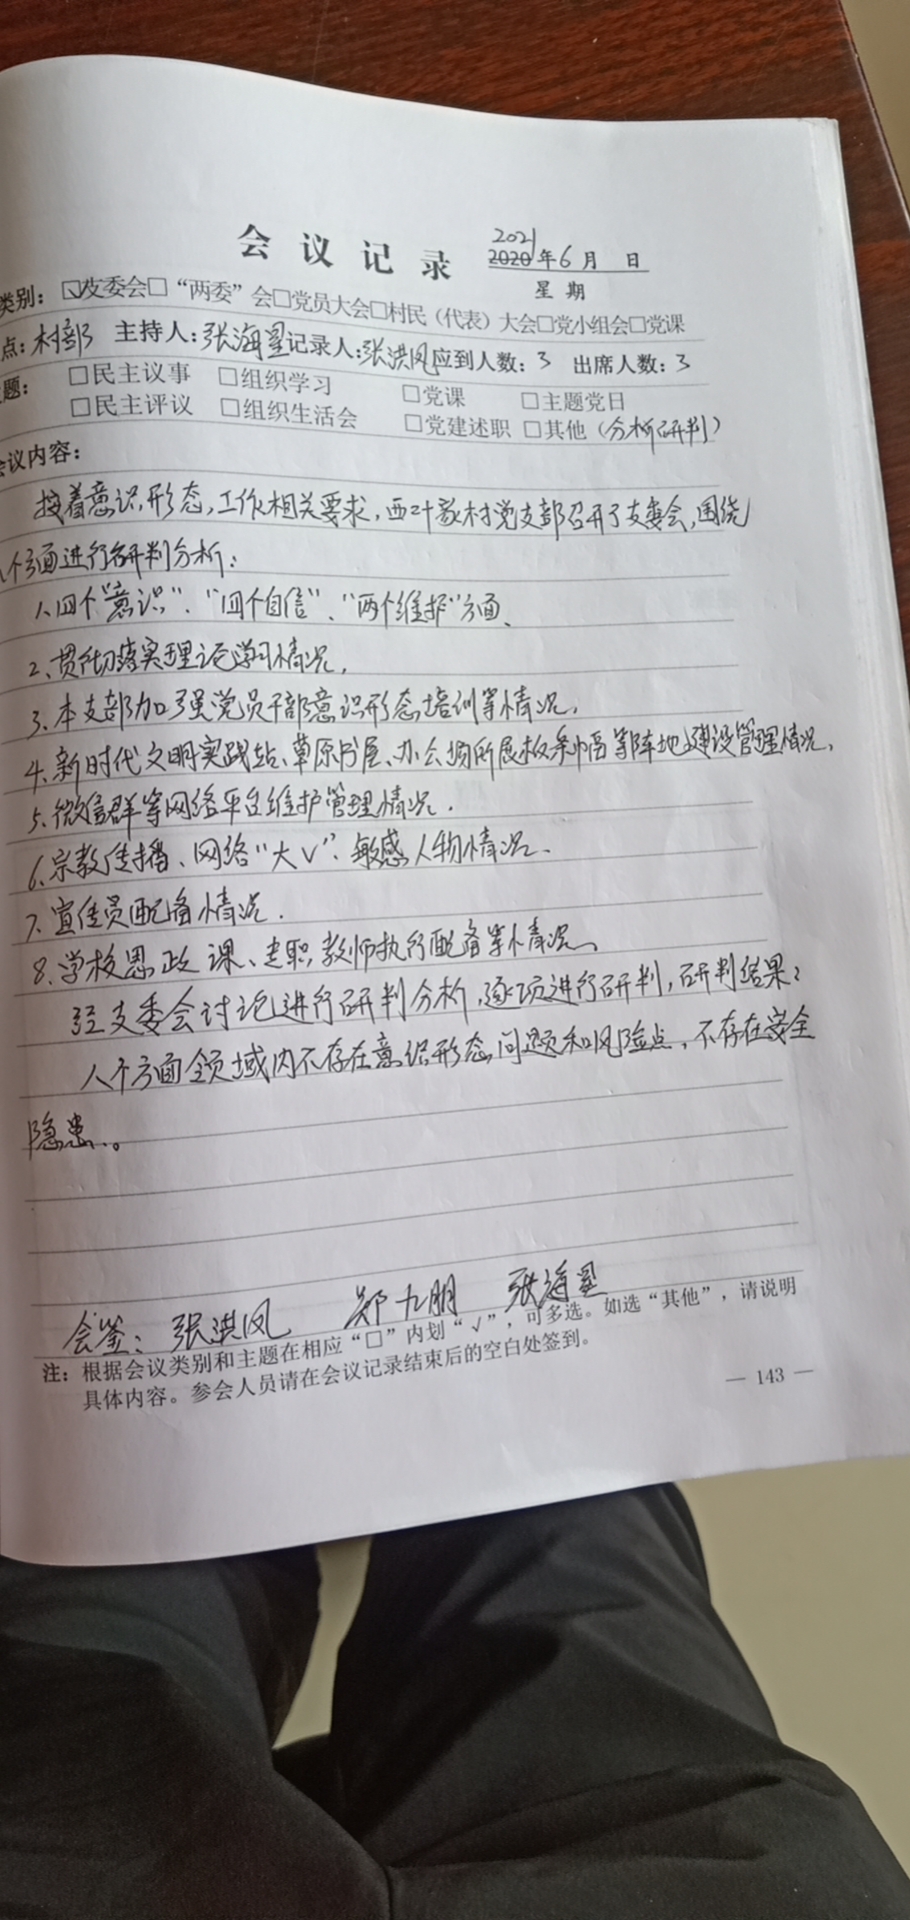 会议记录
2021
2020年6月 日
星期
类别：☑支委会□“两委”会□党员大会□村民（代表）大会□党小组会□党课
点：村部 主持人：张海星记录人：张洪凤应到人数：3 出席人数：3
题： □民主议事 □组织学习 □党课 □主题党日
□民主评议 □组织生活会 □党建述职 □其他（分析研判）
会议内容：
按着意识形态工作相关要求，西叶家村党支部召开了支委会，围绕
八个方面进行研判分析：
1、四个“意识”、“四个自信”、“两个维护”方面、
2、贯彻落实理论学习情况，
3、本支部加强党员干部意识形态培训等情况，
4、新时代文明实践站、草原书屋、办公场所展板条幅等阵地建设管理情况，
5、微信群等网络平台维护管理情况．
6、宗教传播、网络“大V”、敏感人物情况、
7、宣传员配备情况．
8、学校思政课、专职教师执行配备等情况、
经支委会讨论进行研判分析，逐项进行研判，研判结果：
八个方面领域内不存在意识形态问题和风险点，不存在安全
隐患。
会签：张洪凤 郑九朋 张海星
注：根据会议类别和主题在相应“□”内划“√”，可多选。如选“其他”，请说明
具体内容。参会人员请在会议记录结束后的空白处签到。
— 143 —